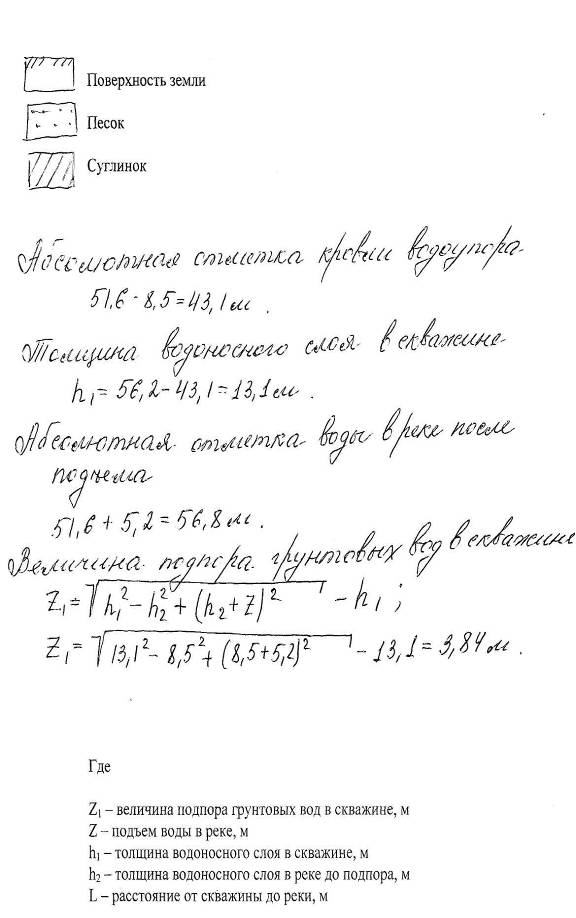 Поверхность земли
Песок
Суглинок
Абсолютная отметка кровли водоупора
51,6 - 8,5 = 43,1 м .
Толщина водоносного слоя в скважине
h₁ = 56,2 – 43,1 = 13,1 м .
Абсолютная отметка воды в реке после
подъема
51,6 + 5,2 = 56,8 м .
Величина подпора грунтовых вод в скважине
Z₁ = √(h₁² – h₂² + (h₂ + Z)²) – h₁ ;
Z₁ = √(13,1² – 8,5² + (8,5 + 5,2)²) – 13,1 = 3,84 м .
Где
Z₁ – величина подпора грунтовых вод в скважине, м
Z – подъем воды в реке, м
h₁ – толщина водоносного слоя в скважине, м
h₂ – толщина водоносного слоя в реке до подпора, м
L – расстояние от скважины до реки, м